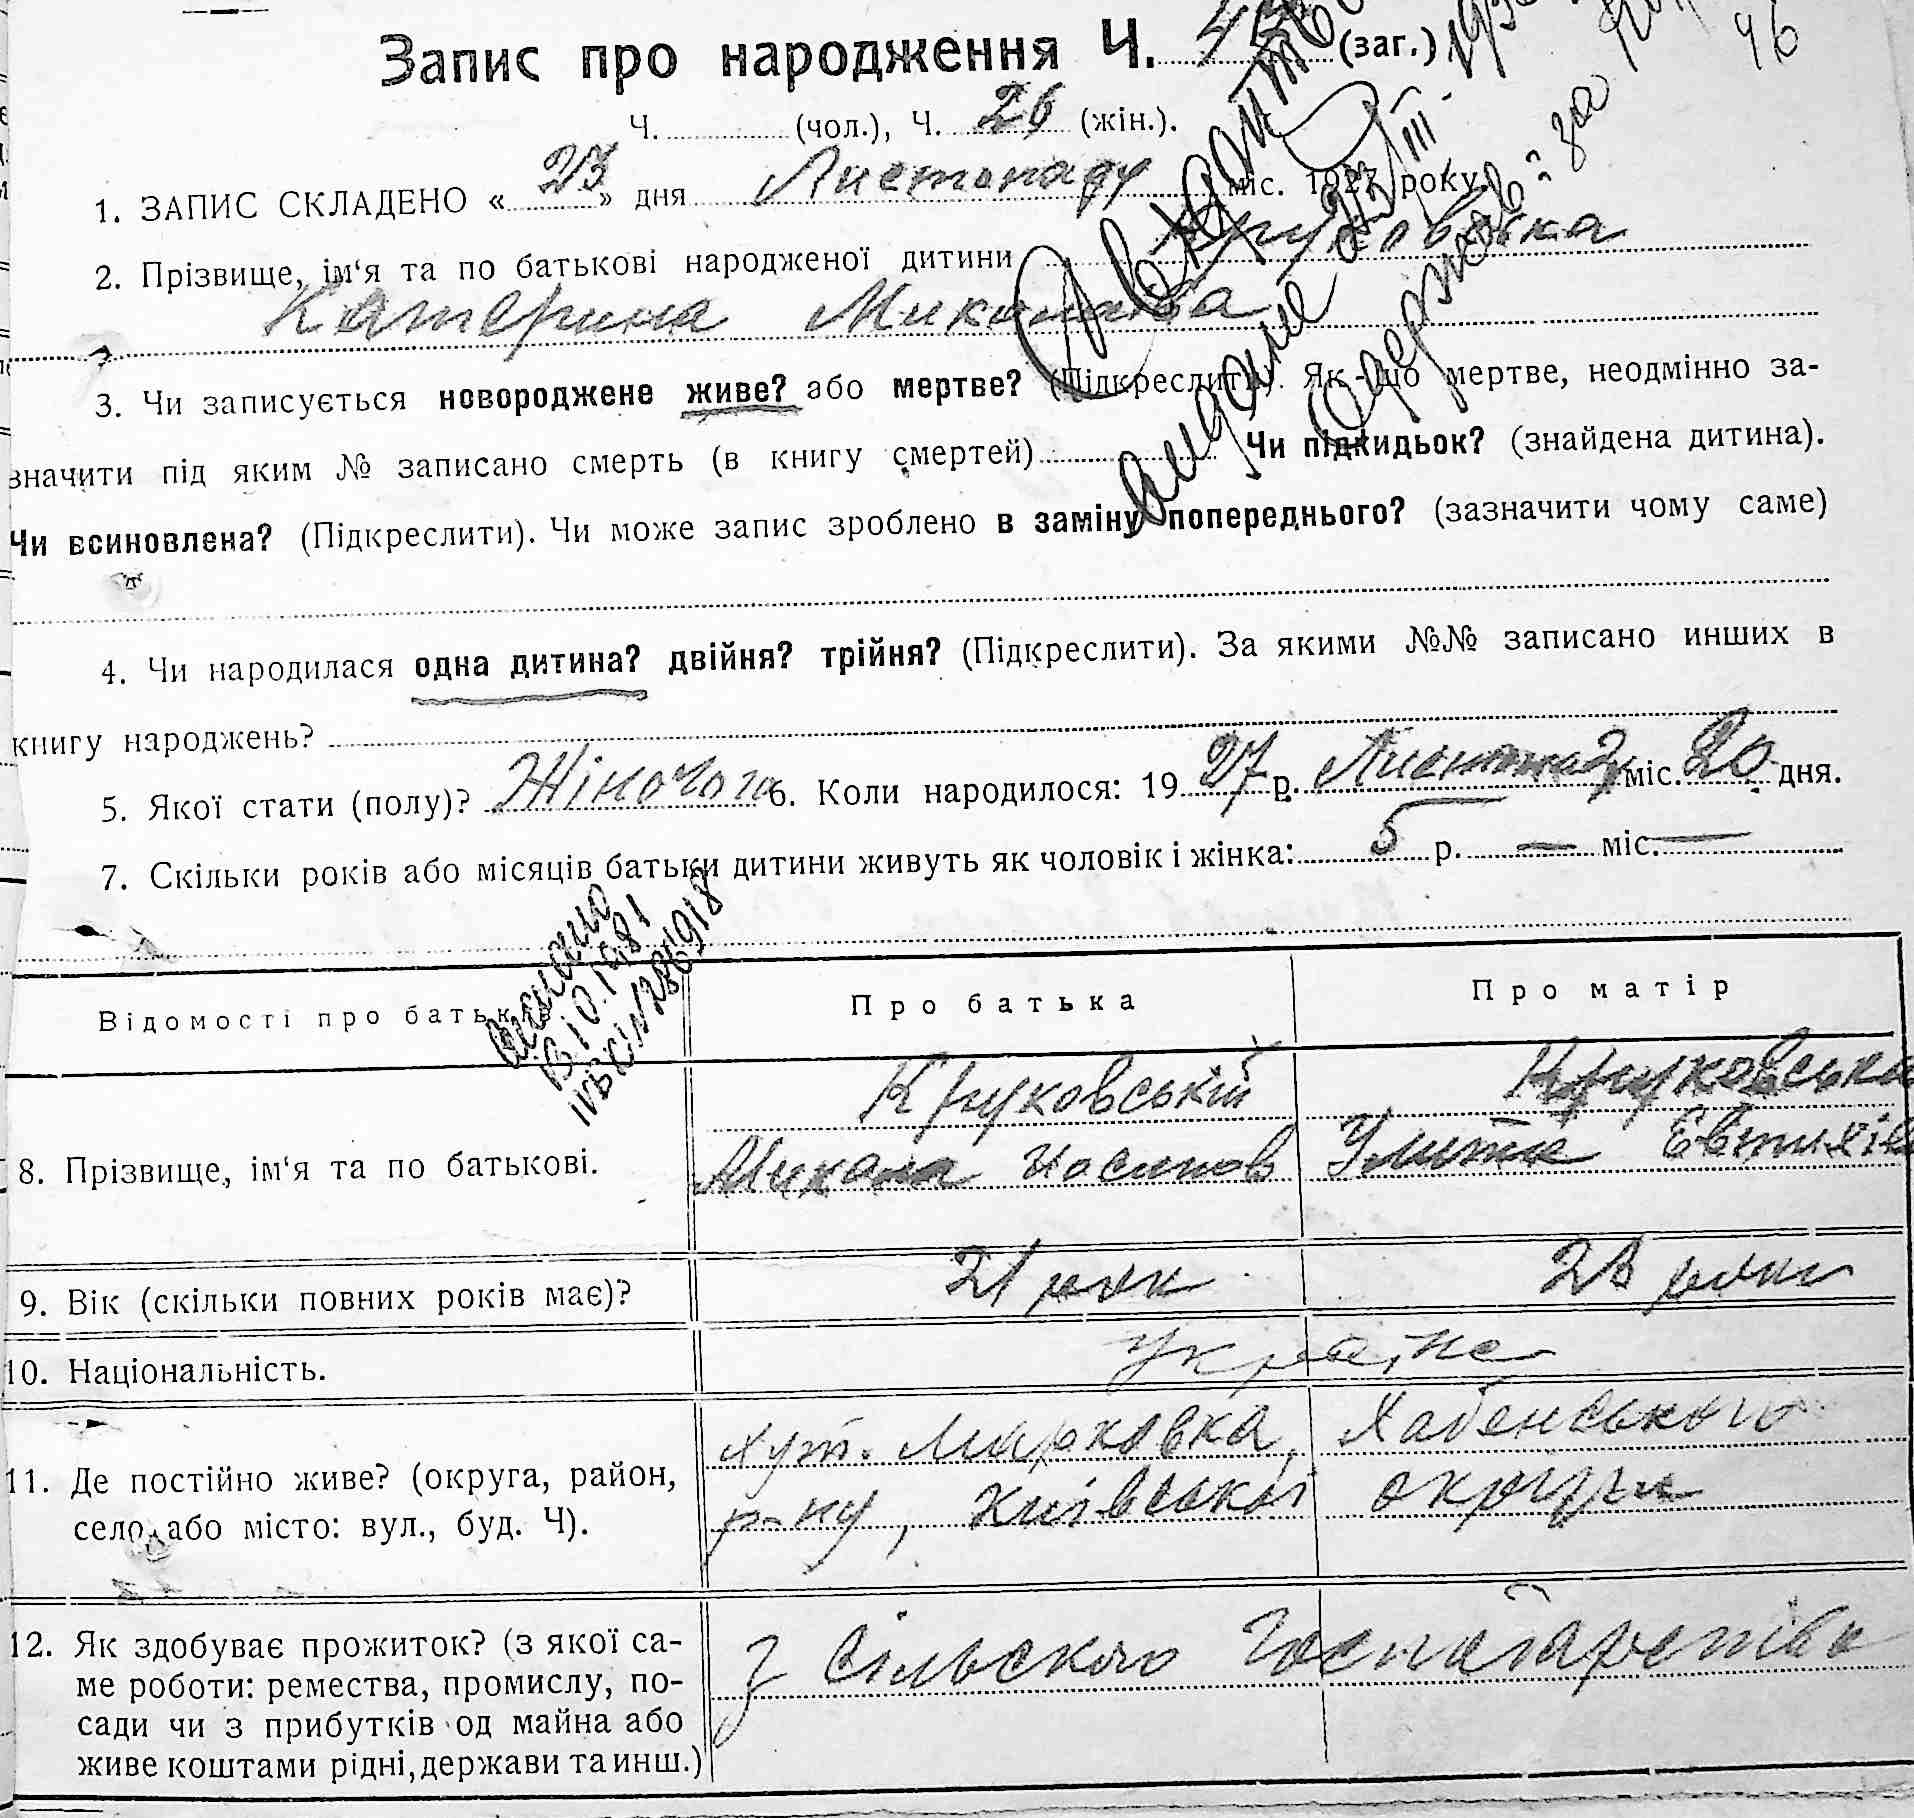 Запис про народження Ч. (заг.)
46
Ч. (чол.), Ч. 26 (жін.).
1. ЗАПИС СКЛАДЕНО « 23 » дня Листопаду міс. 1927 року
2. Прізвище, ім‘я та по батькові народженої дитини Круковська
Катерина Миколаївна
3. Чи записується новороджене живе? або мертве? (Підкреслити). Як-що мертве, неодмінно за-
значити під яким № записано смерть (в книгу смертей) Чи підкидьок? (знайдена дитина).
Чи всиновлена? (Підкреслити). Чи може запис зроблено в заміну попереднього? (зазначити чому саме)
4. Чи народилася одна дитина? двійня? трійня? (Підкреслити). За якими №№ записано инших в
книгу народжень?
5. Якої стати (полу)? Жіночого 6. Коли народилося: 19 27 р. Листопаду міс. 20 дня.
7. Скільки років або місяців батьки дитини живуть як чоловік і жінка: 5 р. — міс. —
13.10.1981
Відомості про батьків
Про батька
Про матір
8. Прізвище, ім‘я та по батькові.
Круковській
Микола Иосипов
Круковська
Улита Евтихіїв
9. Вік (скільки повних років має)?
21 рок
23 роки
10. Національність.
україн
11. Де постійно живе? (округа, район,
село або місто: вул., буд. Ч).
хут. Марковка, Хабенського
р-ну, Київської округи
12. Як здобуває прожиток? (з якої са-
ме роботи: ремества, промислу, по-
сади чи з прибутків од майна або
живе коштами рідні, держави та инш.)
З сільского господарства